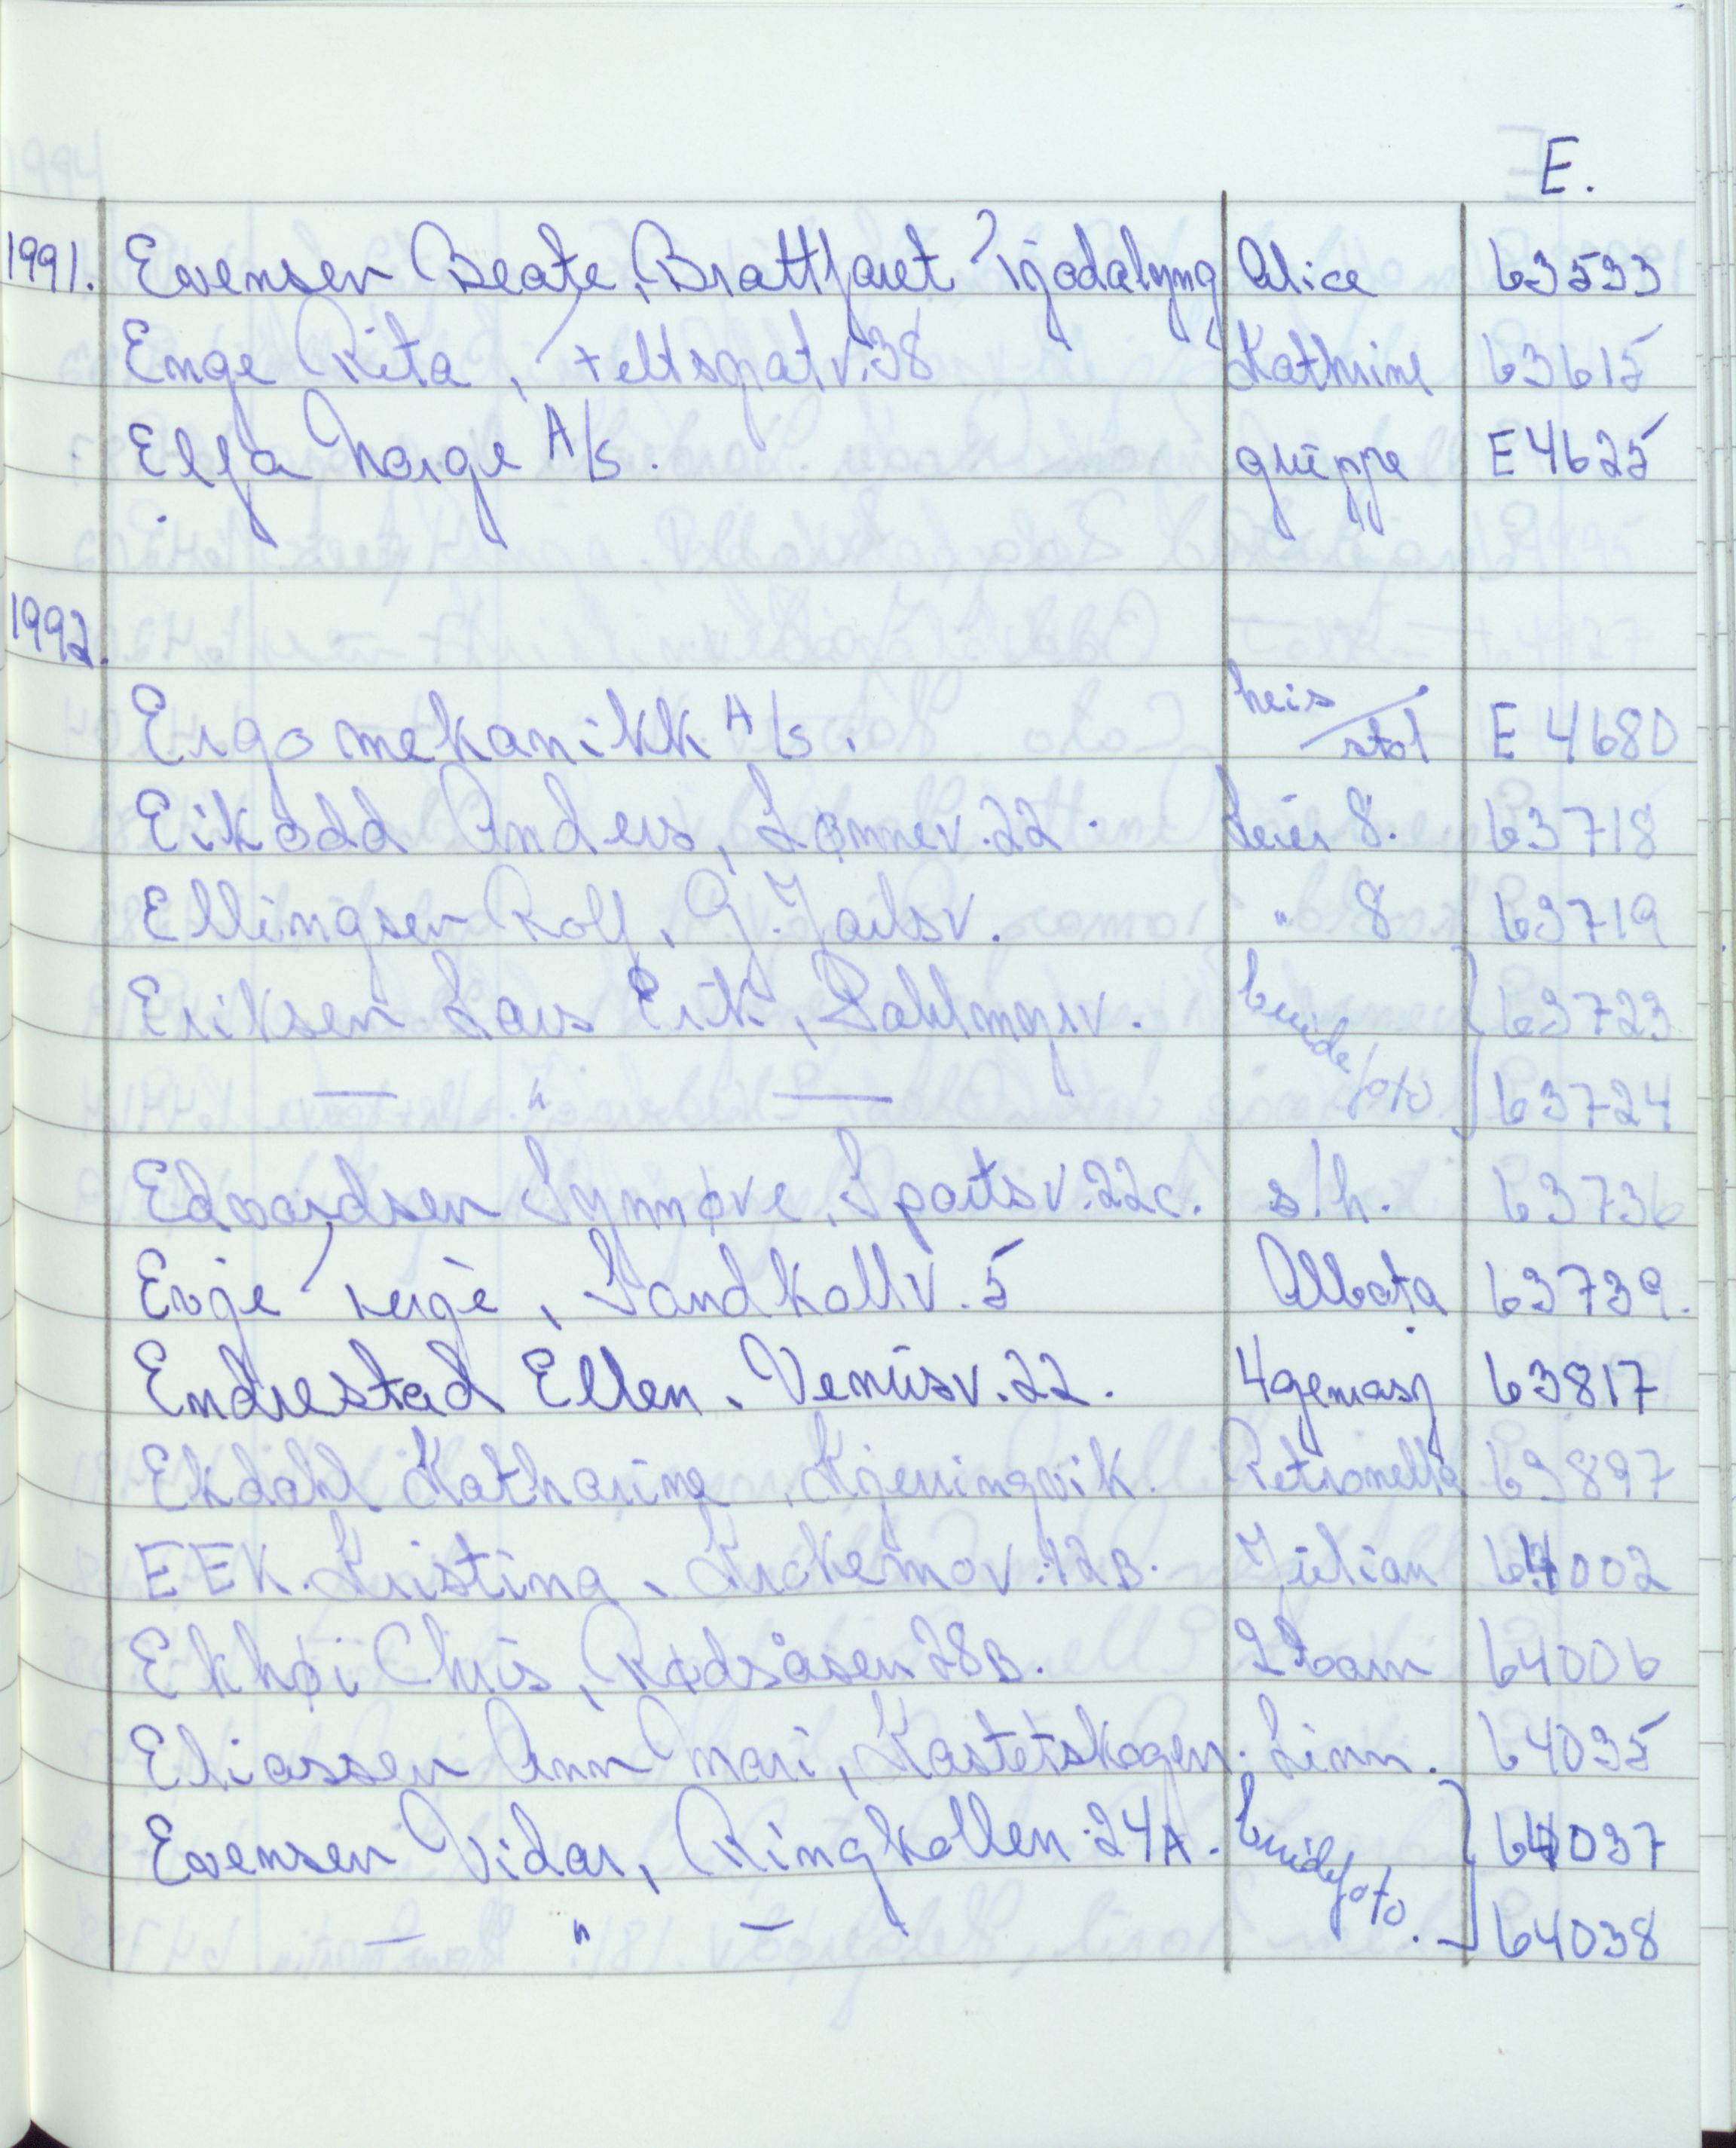 E.
1991. Evensen Beate, Brattfaret Tjodalyng Alice 63533
Enge Rita, Feltspatv. 38 Kathrine 63615
Elfa Norge A/s. gruppe E 4625
1992.
Ergo mekanikk A/s. heis/stol E 4680
Eikodd Anders, Lønnev. 22. Leier 8. 63718
Ellingsen Rolf, G. Jarlsv. " 8 63719
Eriksen Lars Erik, Dahlmgrv. brudefoto 63723
— " — 63724
Edvardsen Synnøve, Sportsv. 22c. s/h. 63736
Evje Terje, Sandkollv. 5 63739.
Endrestad Ellen, Venusv. 22. 4 gener 63817
Ekdahl Katharina, Kjerringvik. Petronella 63897
EEK. Kristina, Kirkemov. 12B. Julian 64002
Ekhøi Chris, Rødsåsen 28B. 2 barn 64006
Eliassen Ann Mari, Kastetskogen. Linn. 64035
Evensen Vidar, Ringkollen 24A. brudefoto. 64037
— " — 64038